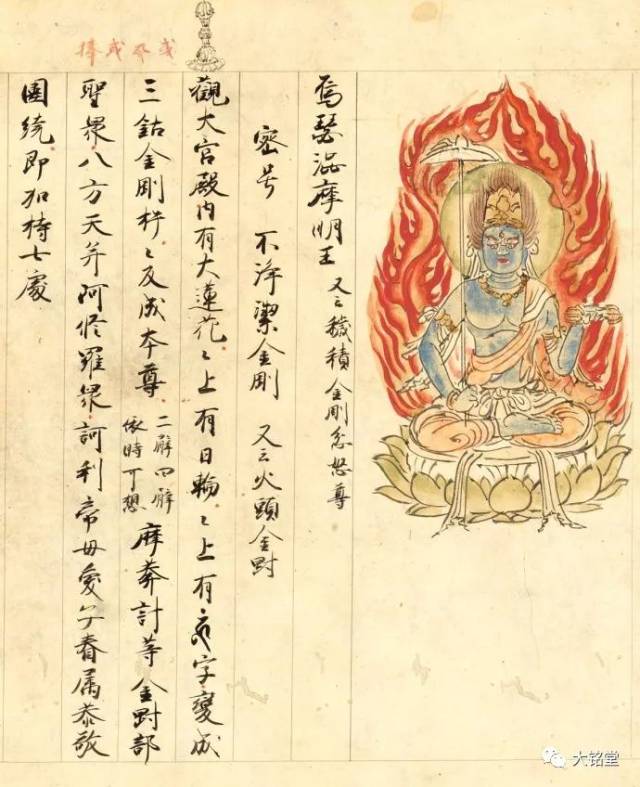 烏瑟澁摩明王 又云穢積金剛忿怒尊
密号 不淨潔金剛 又云火頭金剛
觀大宮殿內有大蓮花〻上有日輪〻上有 字變成
三鈷金剛杵〻反成本尊 二臂四臂 依時可想 摩莽計等金剛部
聖眾八方天并阿修羅眾訶利帝母愛子眷属恭敬
圍繞即加持七處
或 或棒
大铭堂